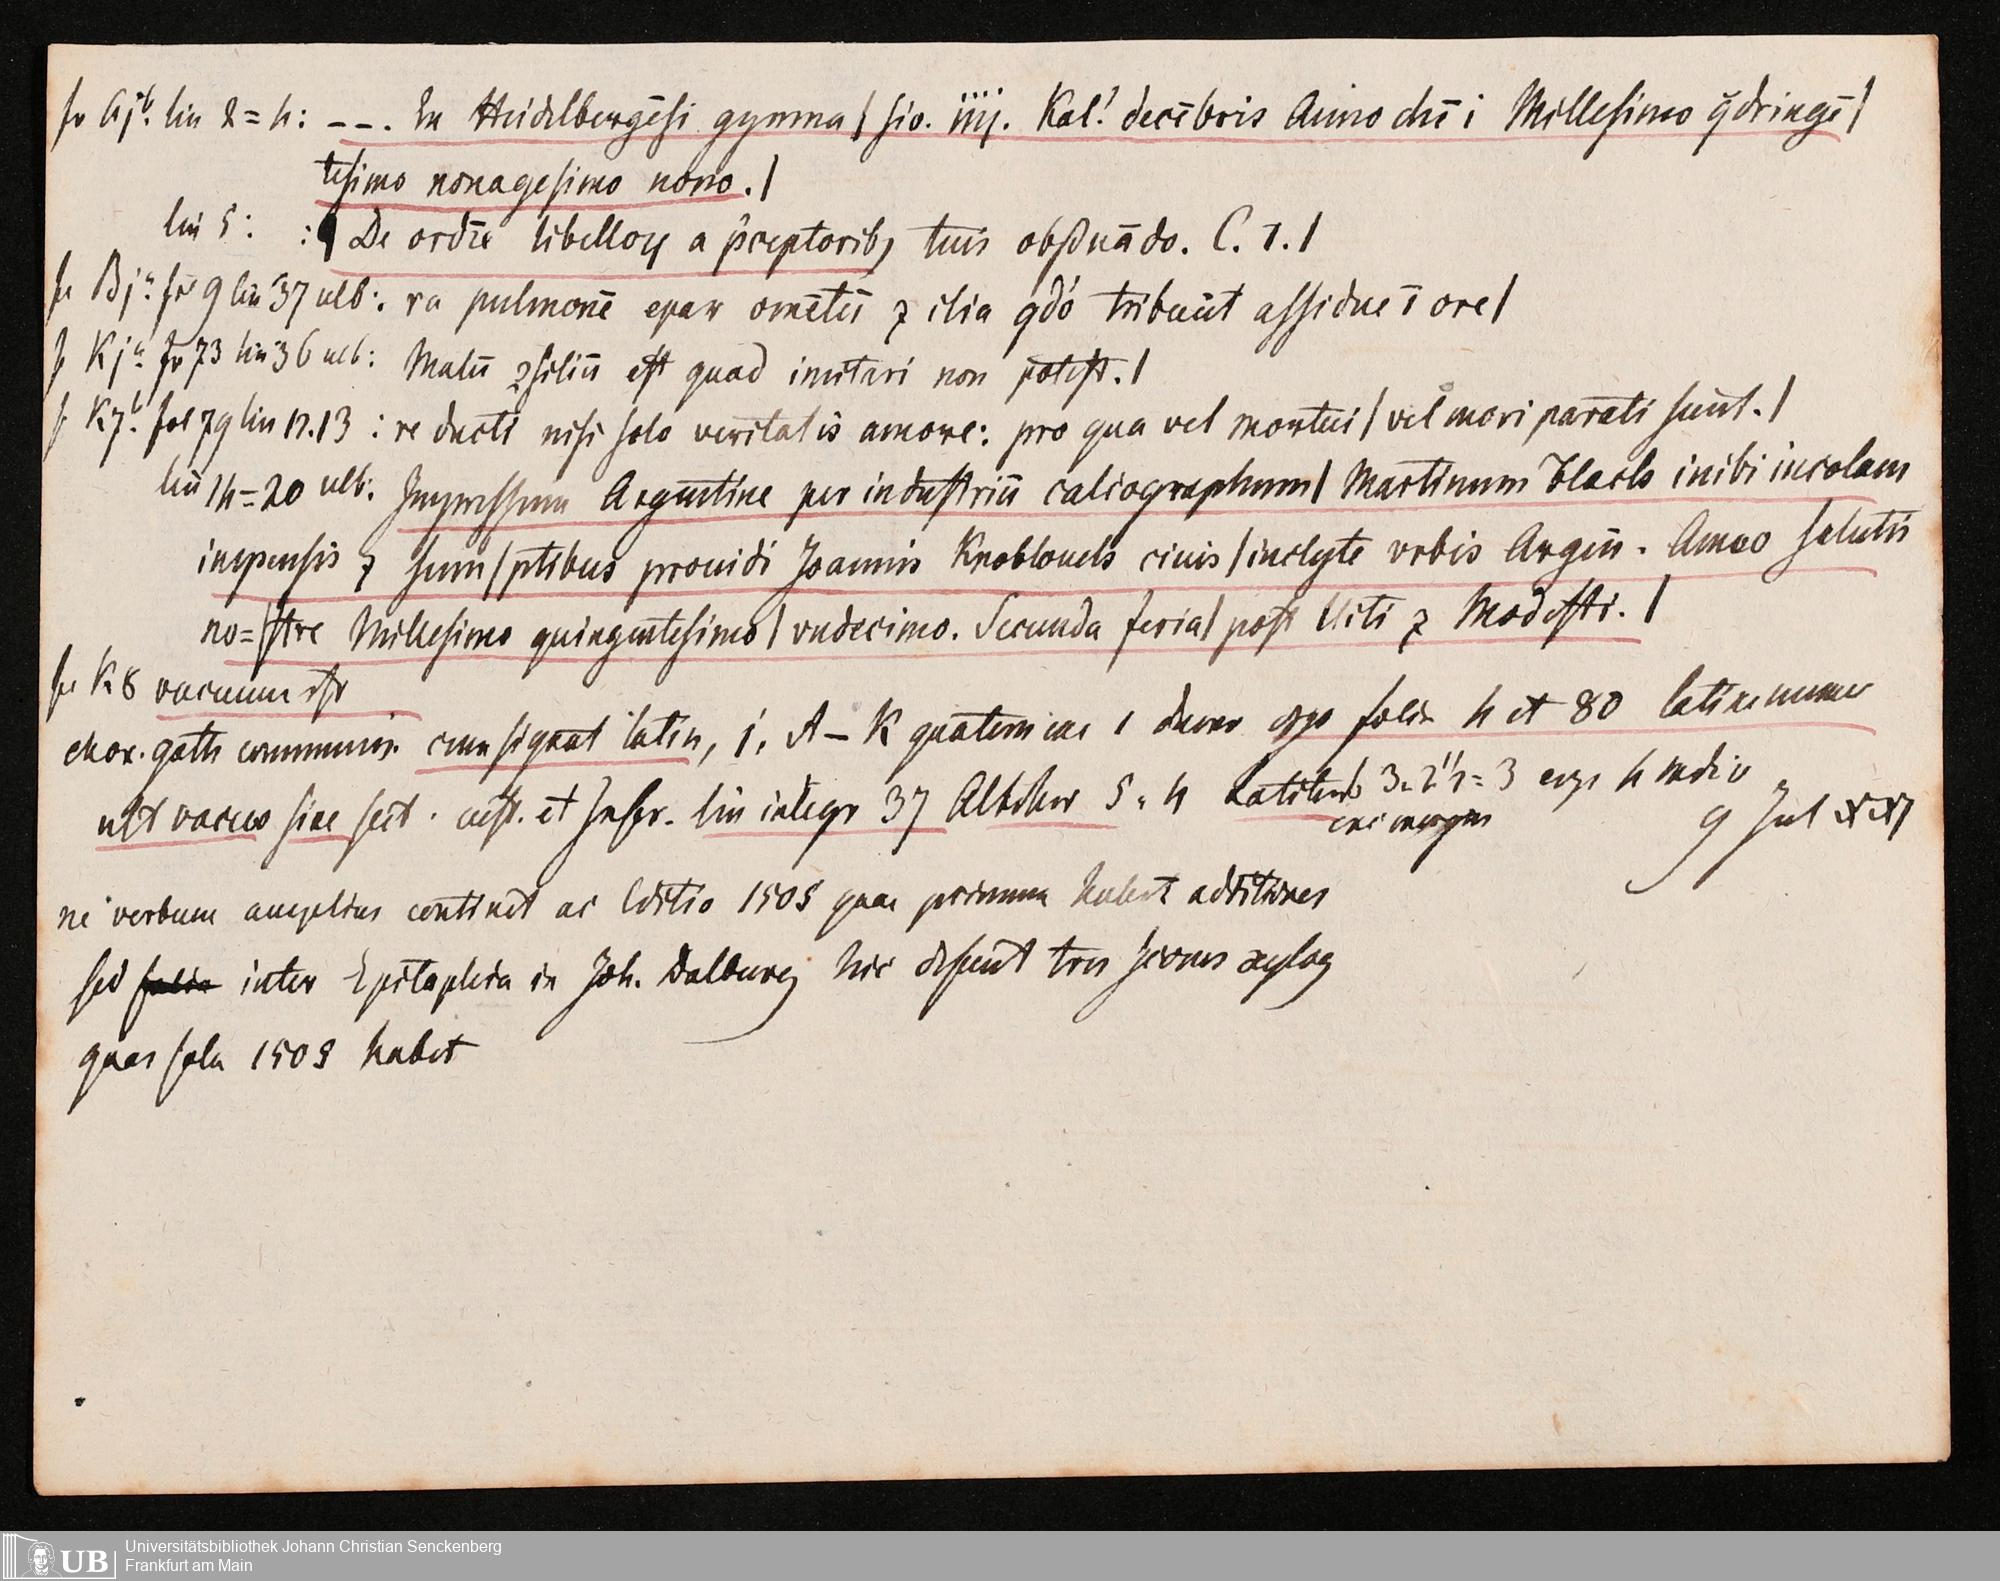 fo Aj b. lin 2=4: ---. Ex Heidelbergēsi gymna| sio. iiij. Kal'. decēbris Anno dn̄i Millesimo q̄dringē|
tesimo nonagesimo nono.|
lin 5: :| De ordīe libelloꝝ a p̄ceptoribꝫ tuis obſꝰuādo. C. 1.|
fo Bj a. fo 9 lin 37 ulb: ra pulmonē epar omētū ⁊ ilia qdó tribuūt assidue ī ore|
f Kj a fo 73 lin 36 ulb: Malū ꝯsiliū est quod imitari non potest.|
f K7 b. fol 79 lin 12.13 : re ducti nisi solo veritatis amore: pro qua vel mortui| vel mori parati sunt.|
lin 14=20 ulb: Impressum Argentine per industriū caliographum| Martinum Flach inibi incolam
impensis ⁊ sum|ptibus prouidi Joannis Knoblouch ciuis| inclyte vrbis Argēn. Anno salutis
no=|stre Millesimo quingentesimo| vndecimo. Secunda feria| post Viti ⁊ Modesti.|
fo K8 vacuum est
char. goth communis. cum signat latin, j, A–K quaterniones ergo folia 4 et 80 latine numer
ult vacuo sine sect. cust. et Inscr. lin integr 37 Altitdo 5.4 Latitudo 3. 2 1/2 = 3 ergo 4 medio
cui margin
9 Jul XXI
ne verbum amplius continet ac Editio 1505 quae primum habet additiones
sed inter Epitaphia in Joh. Dalburg hic desunt tres Icones xylog
quas sola 1505 habet
Universitätsbibliothek Johann Christian Senckenberg
Frankfurt am Main
UB